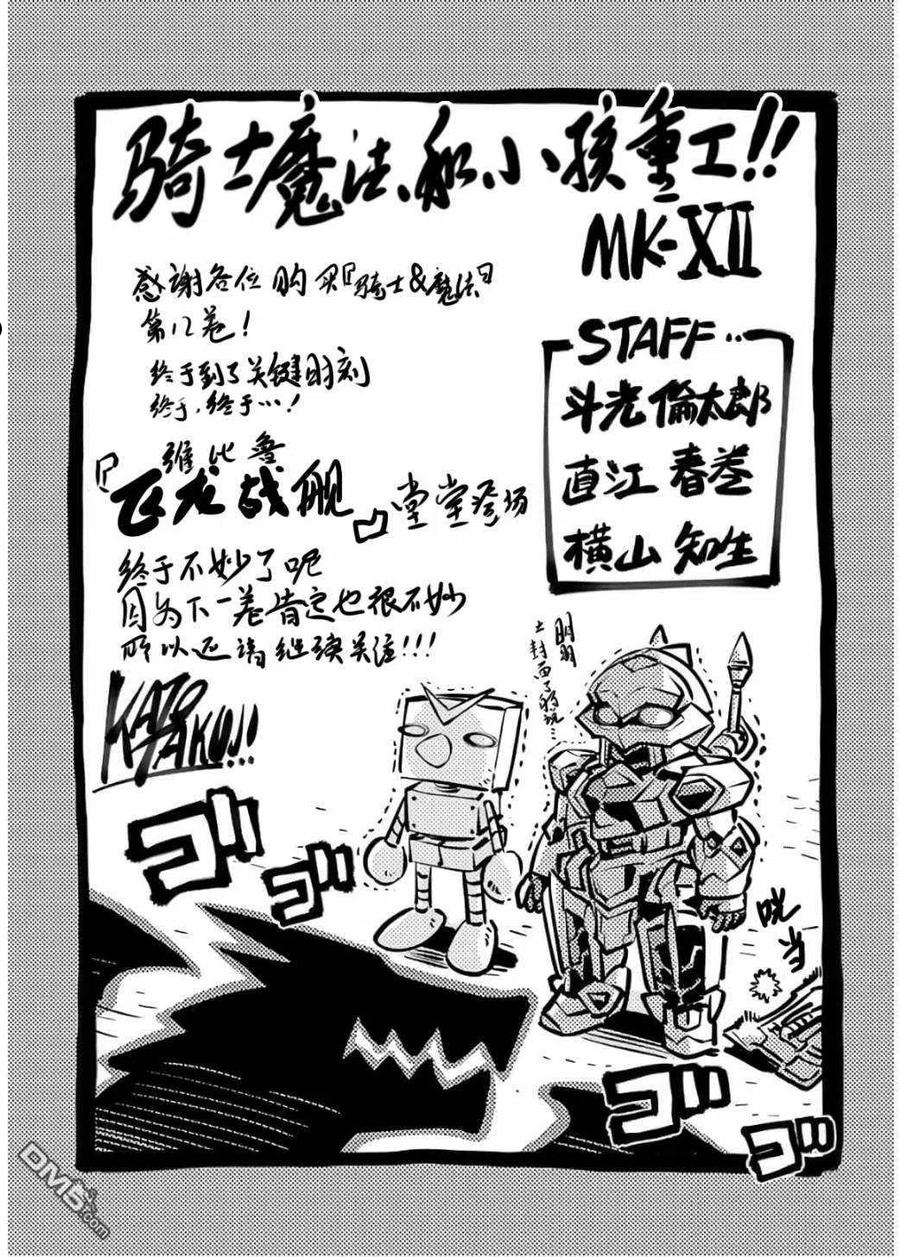 骑士魔法和小孩重工!!
MK-XII
感谢各位购买『骑士&魔法』
第12卷！
终于到了关键时刻
终于，终于…！
维比鲁
『飞龙战舰』堂堂登场
终于不妙了呢
因为下一卷肯定也很不妙
所以还请继续关注!!!
KATO
AKU!!
STAFF
斗光倫太郎
直江 春巻
横山 知生
明明
上封面了的说…
ゴゴ
咣当
ゴゴ
DM5.com